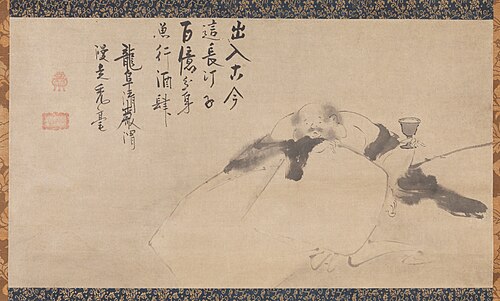 出入古今
這長汀子
百億分身
魚行酒肆
龍阜清巖渭
漫走禿毫